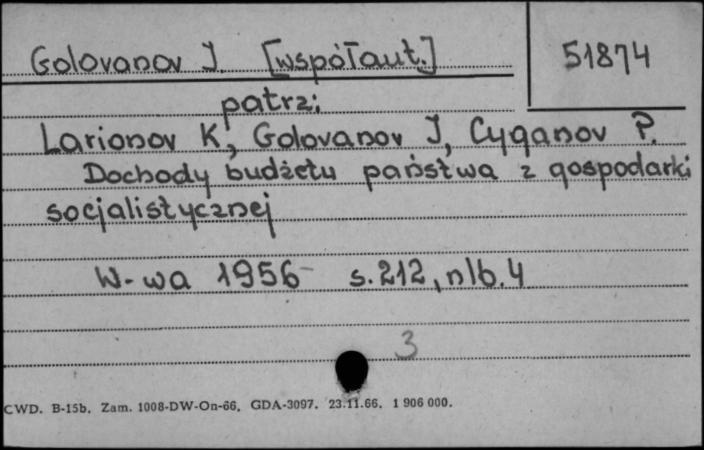 Golovanov J. [współaut.] 51874
patrz:
Larionov K, Golovanov J, Cyganov P.
Dochody budżetu państwa z gospodarki
socjalistycznej
W-wa 1956 s. 212, nlb. 4
3
CWD. B-15b. Zam. 1008-DW-On-66. GDA-3097. 23.11.66. 1 906 000.